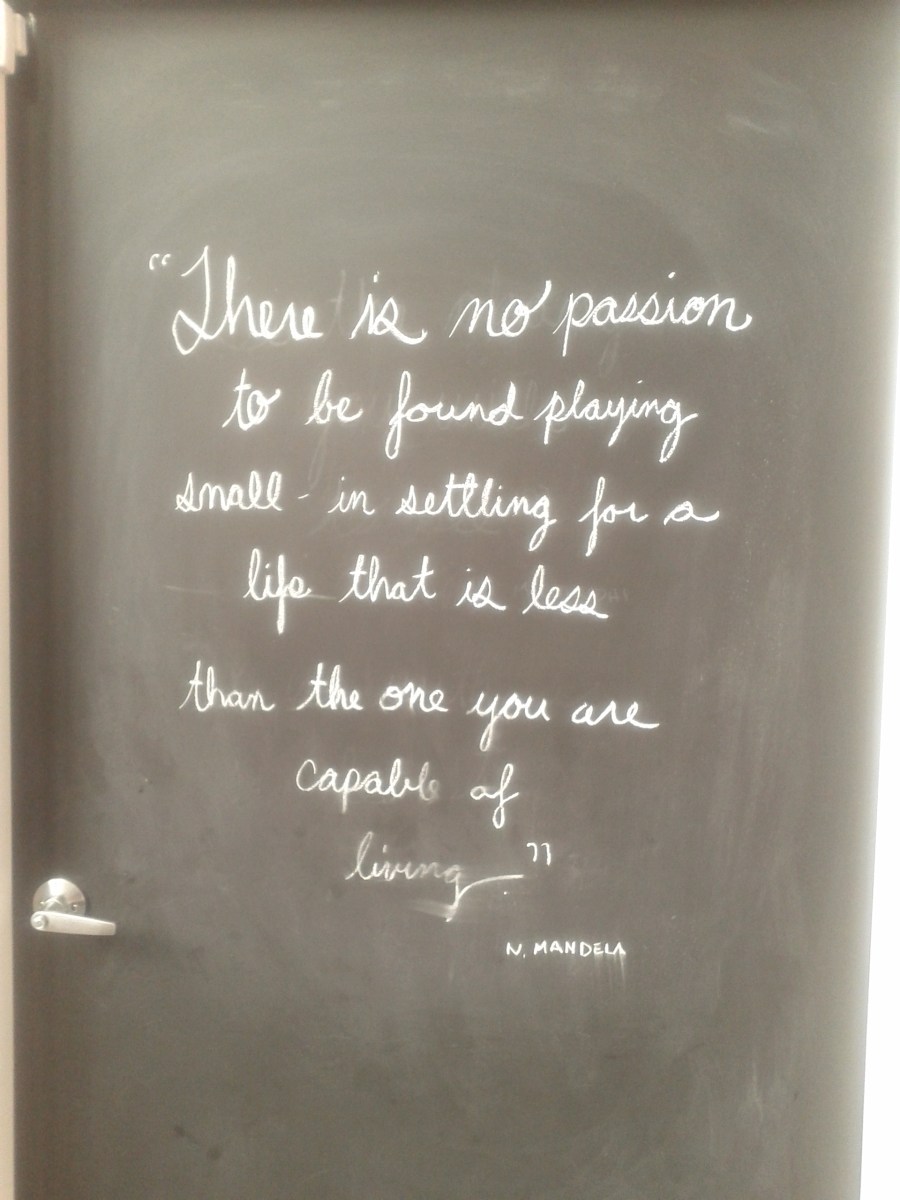 “There is no passion
to be found playing
small - in settling for a
life that is less
than the one you are
capable of
living”
N. MANDELA